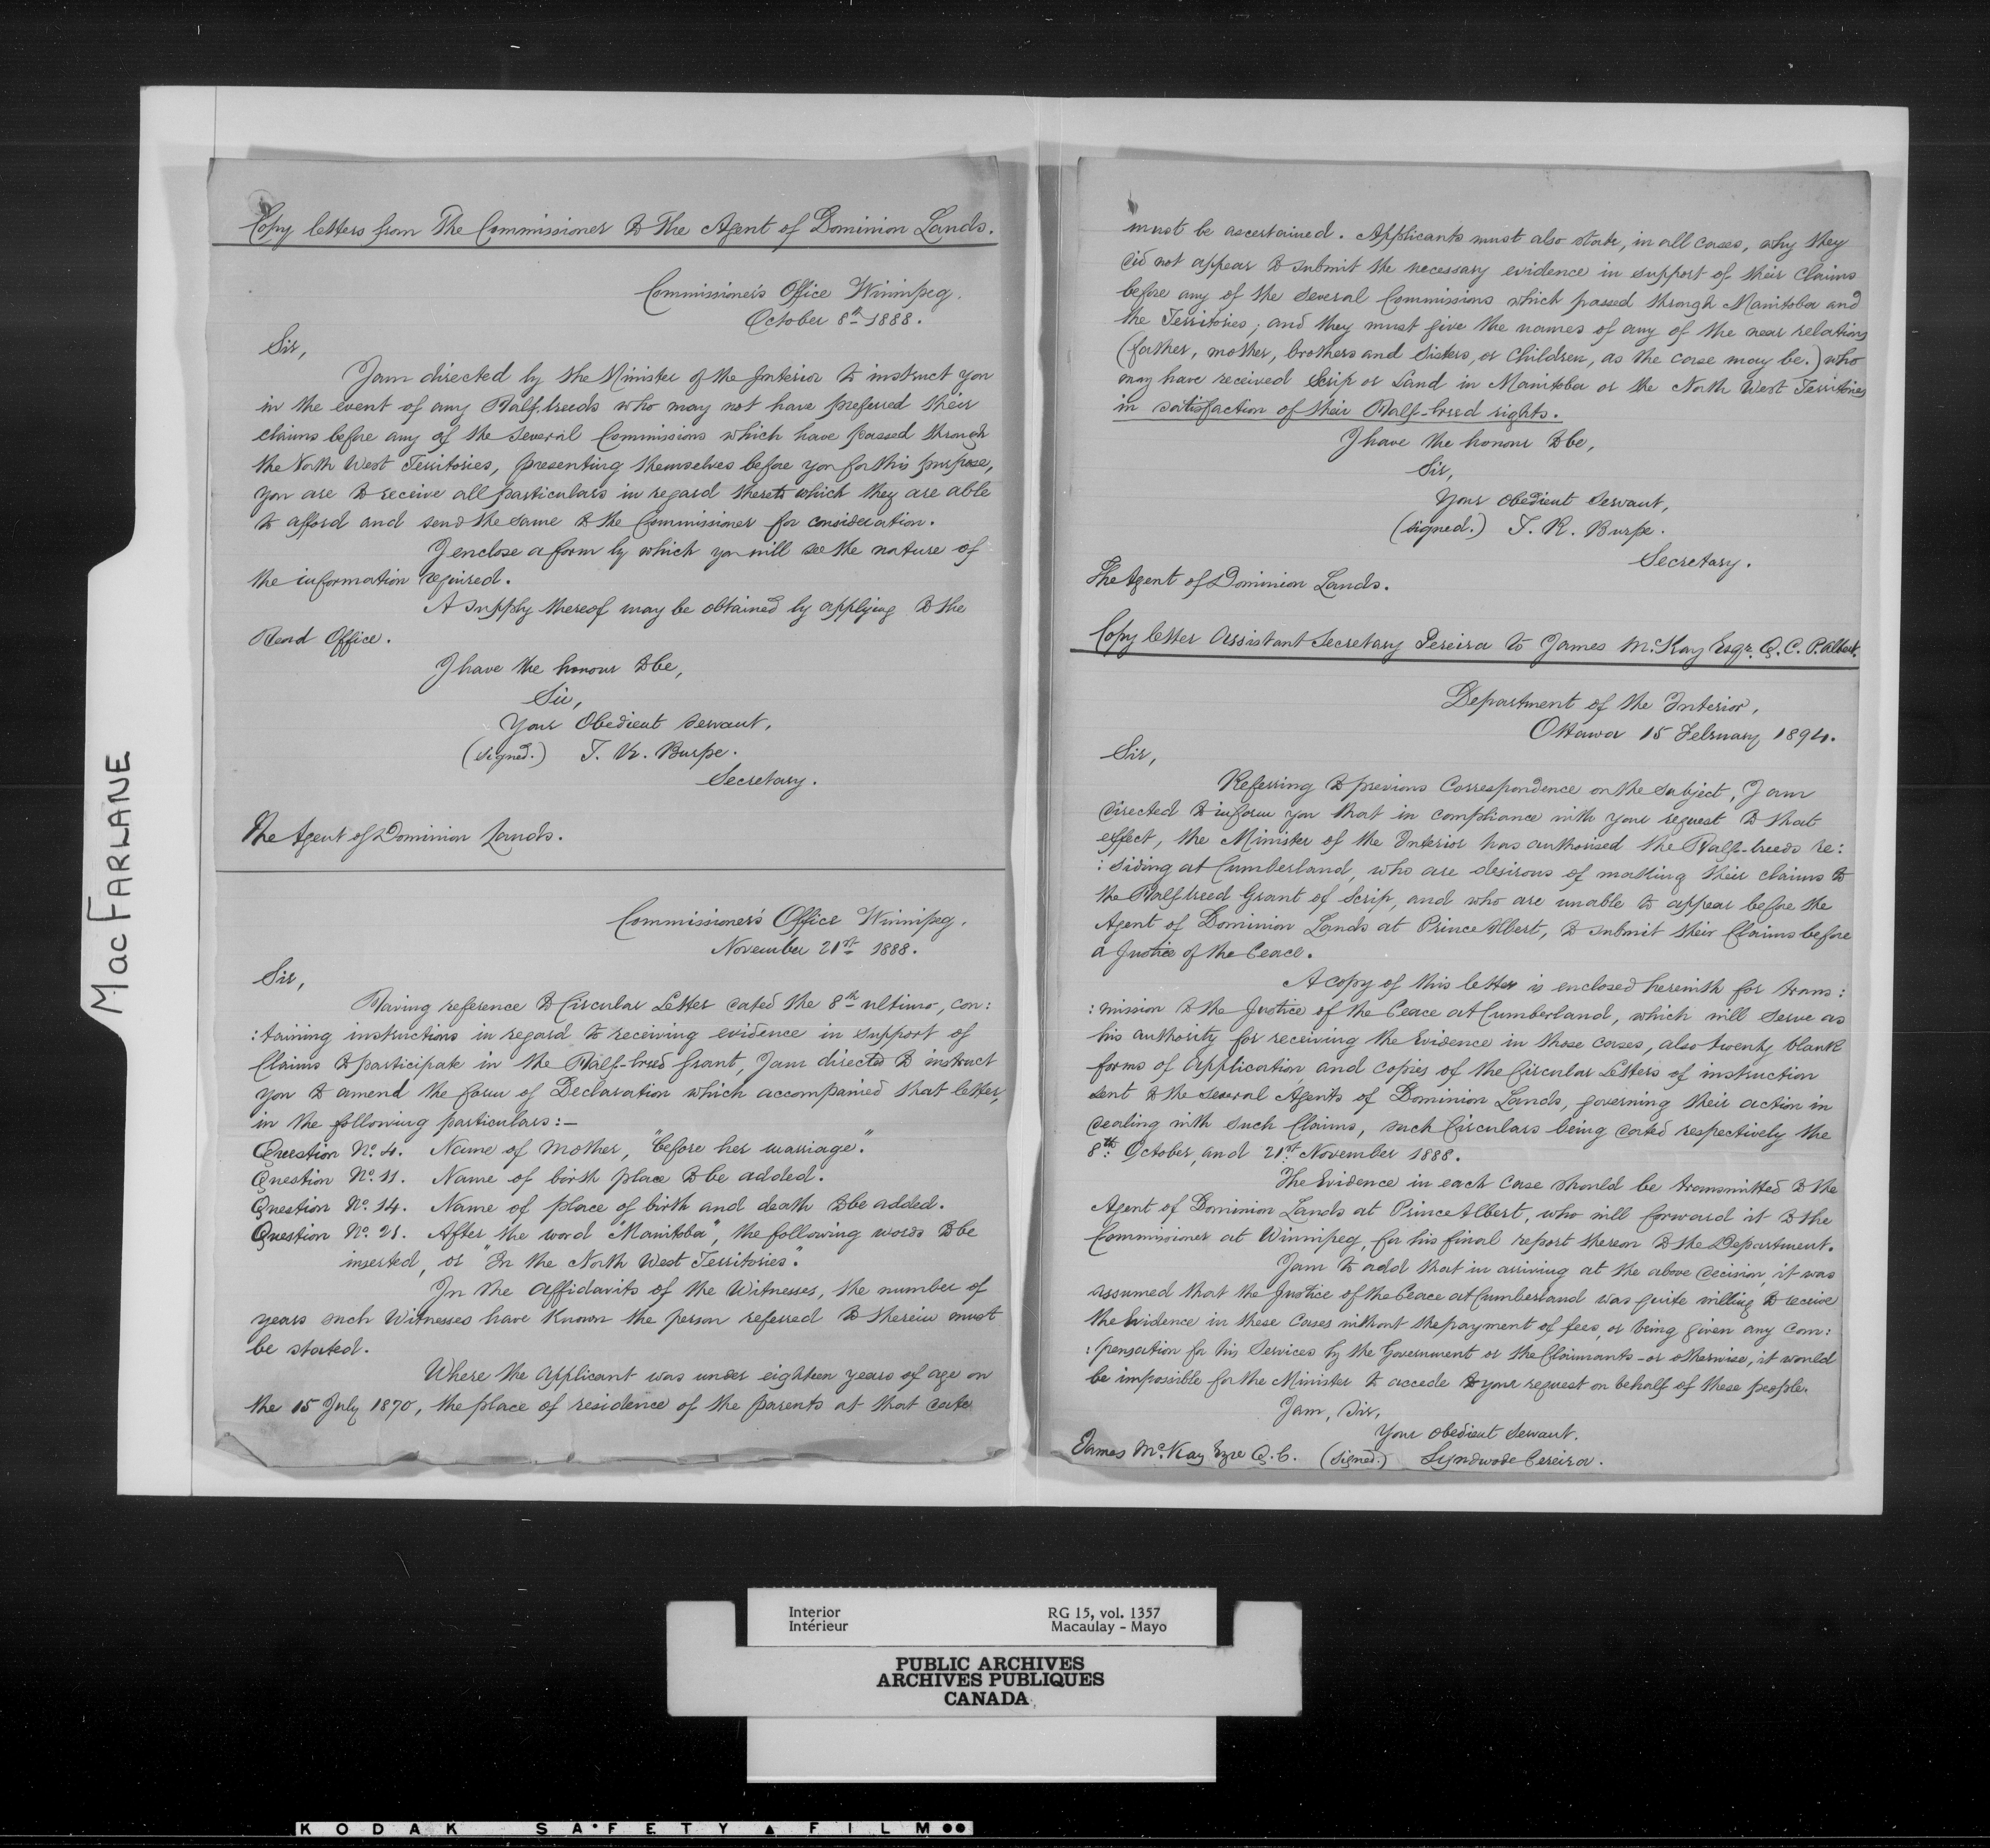 Copy letters from The Commissioner to The Agent of Dominion Lands.
Commissioner's Office Winnipeg.
October 8th 1888.
Sir,
I am directed by the Minister of the Interior to instruct you
in the event of any Half-breeds who may not have preferred their
claims before any of the several Commissions which have passed through
the North West Territories, presenting themselves before you for this purpose,
you are to receive all particulars in regard thereto which they are able
to afford and send the same to the Commissioner for consideration.
I enclose a form by which you will see the nature of
the information required.
A supply thereof may be obtained by applying to the
Head Office.
I have the honour to be,
Sir,
Your Obedient servant,
(signed.) T. R. Burpe.
Secretary.
The Agent of Dominion Lands.
Commissioner's Office Winnipeg.
November 21st 1888.
Sir,
Having reference to Circular Letter dated the 8th ultimo, con:
:taining instructions in regard to receiving evidence in support of
Claims to participate in the Half-breed Grant, I am directed to instruct
you to amend the form of Declaration which accompanied that letter,
in the following particulars:—
Question No. 4. Name of mother, "before her marriage."
Question No. 11. Name of birth place to be added.
Question No. 14. Name of place of birth and death to be added.
Question No. 21. After the word "Manitoba", the following words to be
inserted, or "In the North West Territories".
In the Affidavits of the Witnesses, the number of
years such Witnesses have known the person referred to therein must
be stated.
Where the Applicant was under eighteen years of age on
the 15 July 1870, the place of residence of the parents at that date
must be ascertained. Applicants must also state, in all cases, why they
did not appear to submit the necessary evidence in support of their Claims
before any of the several Commissions which passed through Manitoba and
the Territories; and they must give the names of any of the near relations
(father, mother, brothers and sisters, or children, as the case may be.) who
may have received Scrip or Land in Manitoba or the North West Territories
in satisfaction of their Half-breed rights.
I have the honour to be,
Sir,
Your obedient servant,
(signed.) T. R. Burpe.
Secretary.
The Agent of Dominion Lands.
Copy letter Assistant Secretary Pereira to James McKay Esqr. Q. C. P. Albert.
Department of the Interior,
Ottawa 15 February 1894.
Sir,
Referring to previous Correspondence on the subject, I am
directed to inform you that in compliance with your request to that
effect, the Minister of the Interior has authorised the Half-breeds re:
:siding at Cumberland, who are desirous of making their claims to
the Half breed Grant of Scrip, and who are unable to appear before the
Agent of Dominion Lands at Prince Albert, to submit their Claims before
a Justice of the Peace.
A copy of this letter is enclosed herewith for trans:
:mission to the Justice of the Peace at Cumberland, which will serve as
his authority for receiving the Evidence in those cases, also twenty blank
forms of Application and copies of the Circular Letters of instruction
sent to the several Agents of Dominion Lands, governing their action in
dealing with such Claims, such Circulars being dated respectively the
8th October, and 21st November 1888.
The Evidence in each case should be transmitted to the
Agent of Dominion Lands at Prince Albert, who will forward it to the
Commissioner at Winnipeg, for his final report thereon to the Department.
I am to add that in arriving at the above decision, it was
assumed that the Justice of the Peace at Cumberland was quite willing to receive
the Evidence in these cases without the payment of fees, or being given any com:
:pensation for his Services by the Government or the Claimants - or otherwise, it would
be impossible for the Minister to accede to your request on behalf of these people.
I am, Sir,
Your obedient Servant.
James McKay Esqre Q. C. (signed.) Lyndwode Pereira.
MacFARLANE
Interior RG 15, vol. 1357
Intérieur Macaulay - Mayo
PUBLIC ARCHIVES
ARCHIVES PUBLIQUES
CANADA
KODAK SAFETY FILM